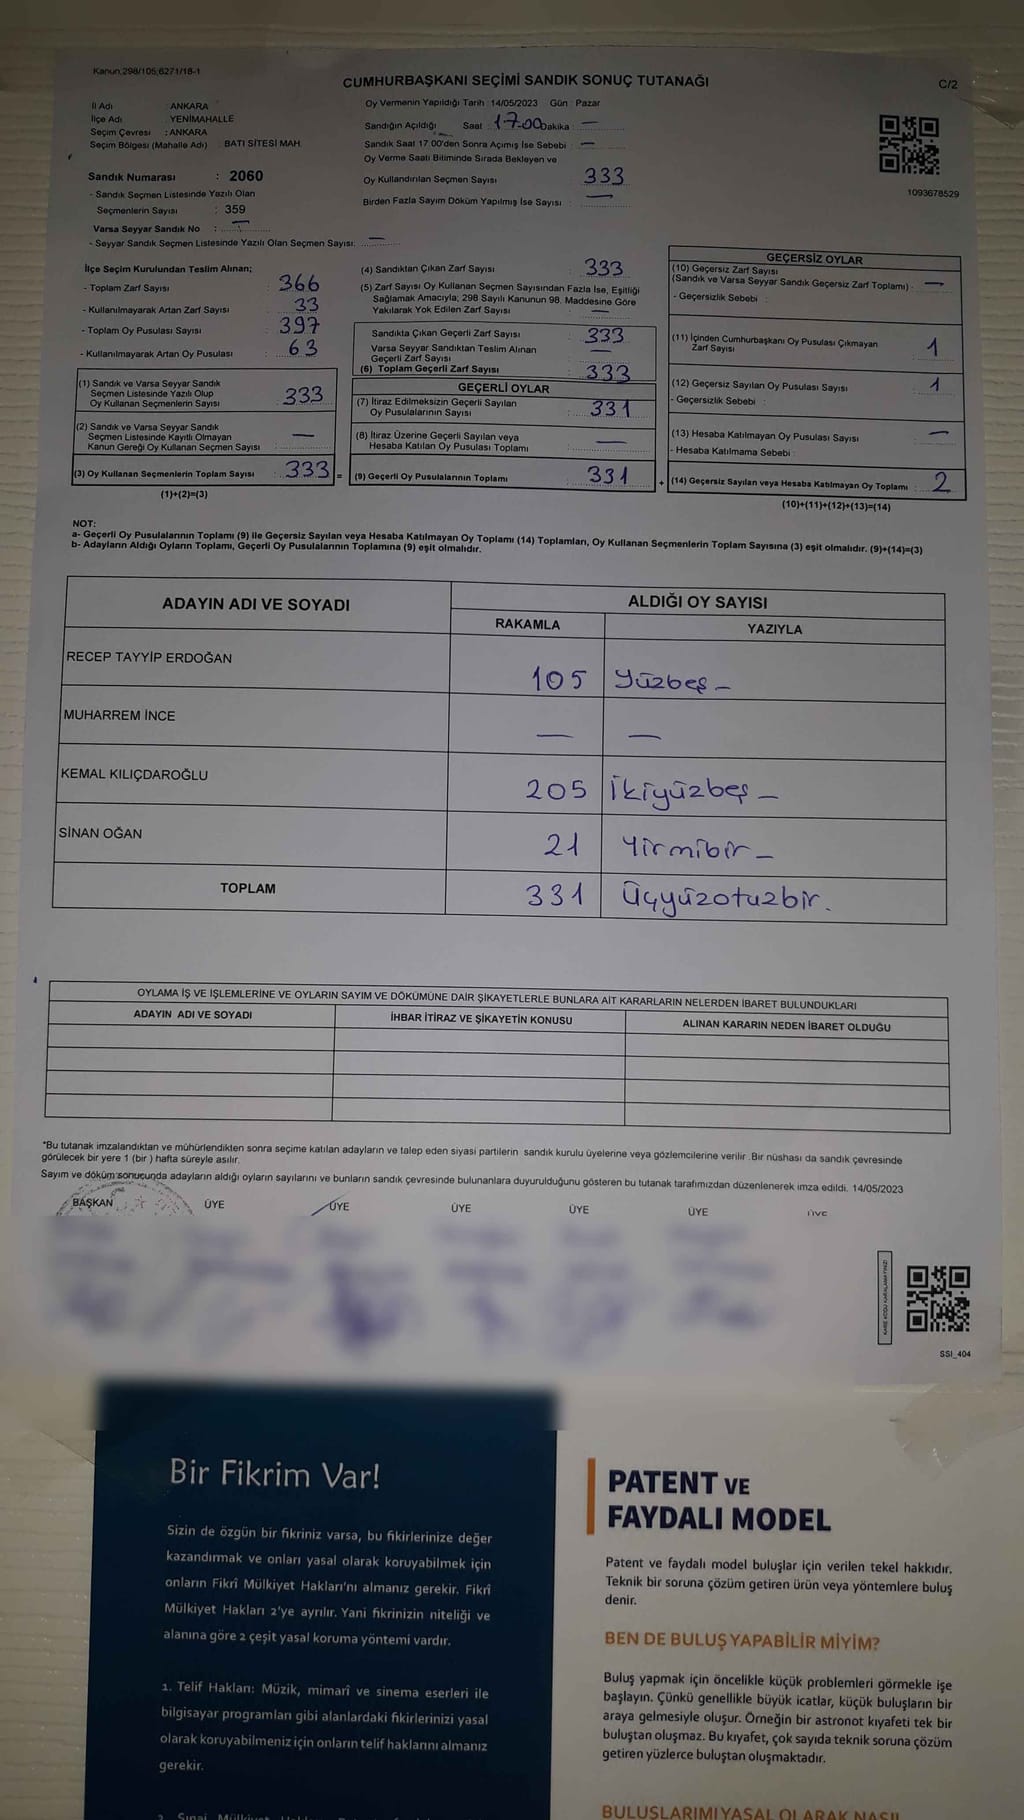 Kanun:298/105;6271/18-1
CUMHURBAŞKANI SEÇİMİ SANDIK SONUÇ TUTANAĞI
C/2
İl Adı : ANKARA
İlçe Adı : YENİMAHALLE
Seçim Çevresi : ANKARA
Seçim Bölgesi (Mahalle Adı) : BATI SİTESİ MAH.
Sandık Numarası : 2060
- Sandık Seçmen Listesinde Yazılı Olan
Seçmenlerin Sayısı : 359
Varsa Seyyar Sandık No : —
- Seyyar Sandık Seçmen Listesinde Yazılı Olan Seçmen Sayısı: —
Oy Vermenin Yapıldığı Tarih : 14/05/2023 Gün : Pazar
Sandığın Açıldığı Saat : 17.00 Dakika : —
Sandık Saat 17.00'den Sonra Açımış İse Sebebi : —
Oy Verme Saati Bitiminde Sırada Bekleyen ve
Oy Kullandırılan Seçmen Sayısı : 333
Birden Fazla Sayım Döküm Yapılmış İse Sayısı : —
1093678529
İlçe Seçim Kurulundan Teslim Alınan;
- Toplam Zarf Sayısı : 366
- Kullanılmayarak Artan Zarf Sayısı : 33
- Toplam Oy Pusulası Sayısı : 397
- Kullanılmayarak Artan Oy Pusulası : 63
(1) Sandık ve Varsa Seyyar Sandık
Seçmen Listesinde Yazılı Olup
Oy Kullanan Seçmenlerin Sayısı : 333
(2) Sandık ve Varsa Seyyar Sandık
Seçmen Listesinde Kayıtlı Olmayan
Kanun Gereği Oy Kullanan Seçmen Sayısı : —
(3) Oy Kullanan Seçmenlerin Toplam Sayısı : 333 =
(1)+(2)=(3)
(4) Sandıktan Çıkan Zarf Sayısı : 333
(5) Zarf Sayısı Oy Kullanan Seçmen Sayısından Fazla İse, Eşitliği
Sağlamak Amacıyla; 298 Sayılı Kanunun 98. Maddesine Göre
Yakılarak Yok Edilen Zarf Sayısı : —
Sandıkta Çıkan Geçerli Zarf Sayısı : 333
Varsa Seyyar Sandıktan Teslim Alınan
Geçerli Zarf Sayısı : —
(6) Toplam Geçerli Zarf Sayısı : 333
GEÇERLİ OYLAR
(7) İtiraz Edilmeksizin Geçerli Sayılan
Oy Pusulalarının Sayısı : 331
(8) İtiraz Üzerine Geçerli Sayılan veya
Hesaba Katılan Oy Pusulası Toplamı : —
(9) Geçerli Oy Pusulalarının Toplamı : 331 +
GEÇERSİZ OYLAR
(10) Geçersiz Zarf Sayısı
(Sandık ve Varsa Seyyar Sandık Geçersiz Zarf Toplamı) : —
- Geçersizlik Sebebi :
(11) İçinden Cumhurbaşkanı Oy Pusulası Çıkmayan
Zarf Sayısı : 1
(12) Geçersiz Sayılan Oy Pusulası Sayısı : 1
- Geçersizlik Sebebi :
(13) Hesaba Katılmayan Oy Pusulası Sayısı : —
- Hesaba Katılmama Sebebi :
(14) Geçersiz Sayılan veya Hesaba Katılmayan Oy Toplamı : 2
(10)+(11)+(12)+(13)=(14)
NOT:
a- Geçerli Oy Pusulalarının Toplamı (9) ile Geçersiz Sayılan veya Hesaba Katılmayan Oy Toplamı (14) Toplamları, Oy Kullanan Seçmenlerin Toplam Sayısına (3) eşit olmalıdır. (9)+(14)=(3)
b- Adayların Aldığı Oyların Toplamı, Geçerli Oy Pusulalarının Toplamına (9) eşit olmalıdır.
ADAYIN ADI VE SOYADI
ALDIĞI OY SAYISI
RAKAMLA YAZIYLA
RECEP TAYYİP ERDOĞAN 105 Yüzbeş —
MUHARREM İNCE — —
KEMAL KILIÇDAROĞLU 205 İkiyüzbeş —
SİNAN OĞAN 21 Yirmibir —
TOPLAM 331 Üçyüzotuzbir.
OYLAMA İŞ VE İŞLEMLERİNE VE OYLARIN SAYIM VE DÖKÜMÜNE DAİR ŞİKAYETLERLE BUNLARA AİT KARARLARIN NELERDEN İBARET BULUNDUKLARI
ADAYIN ADI VE SOYADI İHBAR İTİRAZ VE ŞİKAYETİN KONUSU ALINAN KARARIN NEDEN İBARET OLDUĞU
*Bu tutanak imzalandıktan ve mühürlendikten sonra seçime katılan adayların ve talep eden siyasi partilerin sandık kurulu üyelerine veya gözlemcilerine verilir .Bir nüshası da sandık çevresinde
görülecek bir yere 1 (bir ) hafta süreyle asılır.
Sayım ve döküm sonucunda adayların aldığı oyların sayılarını ve bunların sandık çevresinde bulunanlara duyurulduğunu gösteren bu tutanak tarafımızdan düzenlenerek imza edildi. 14/05/2023
BAŞKAN ÜYE ÜYE ÜYE ÜYE ÜYE ÜYE
KARE KODU KARALAMAYINIZ!
SSI_404
Bir Fikrim Var!
Sizin de özgün bir fikriniz varsa, bu fikirlerinize değer
kazandırmak ve onları yasal olarak koruyabilmek için
onların Fikrî Mülkiyet Hakları'nı almanız gerekir. Fikrî
Mülkiyet Hakları 2'ye ayrılır. Yani fikrinizin niteliği ve
alanına göre 2 çeşit yasal koruma yöntemi vardır.
1. Telif Hakları: Müzik, mimarî ve sinema eserleri ile
bilgisayar programları gibi alanlardaki fikirlerinizi yasal
olarak koruyabilmeniz için onların telif haklarını almanız
gerekir.
2. Sınai Mülkiyet
PATENT VE
FAYDALI MODEL
Patent ve faydalı model buluşlar için verilen tekel hakkıdır.
Teknik bir soruna çözüm getiren ürün veya yöntemlere buluş
denir.
BEN DE BULUŞ YAPABİLİR MİYİM?
Buluş yapmak için öncelikle küçük problemleri görmekle işe
başlayın. Çünkü genellikle büyük icatlar, küçük buluşların bir
araya gelmesiyle oluşur. Örneğin bir astronot kıyafeti tek bir
buluştan oluşmaz. Bu kıyafet, çok sayıda teknik soruna çözüm
getiren yüzlerce buluştan oluşmaktadır.
BULUŞLARIMI YASAL OLARAK NASIL